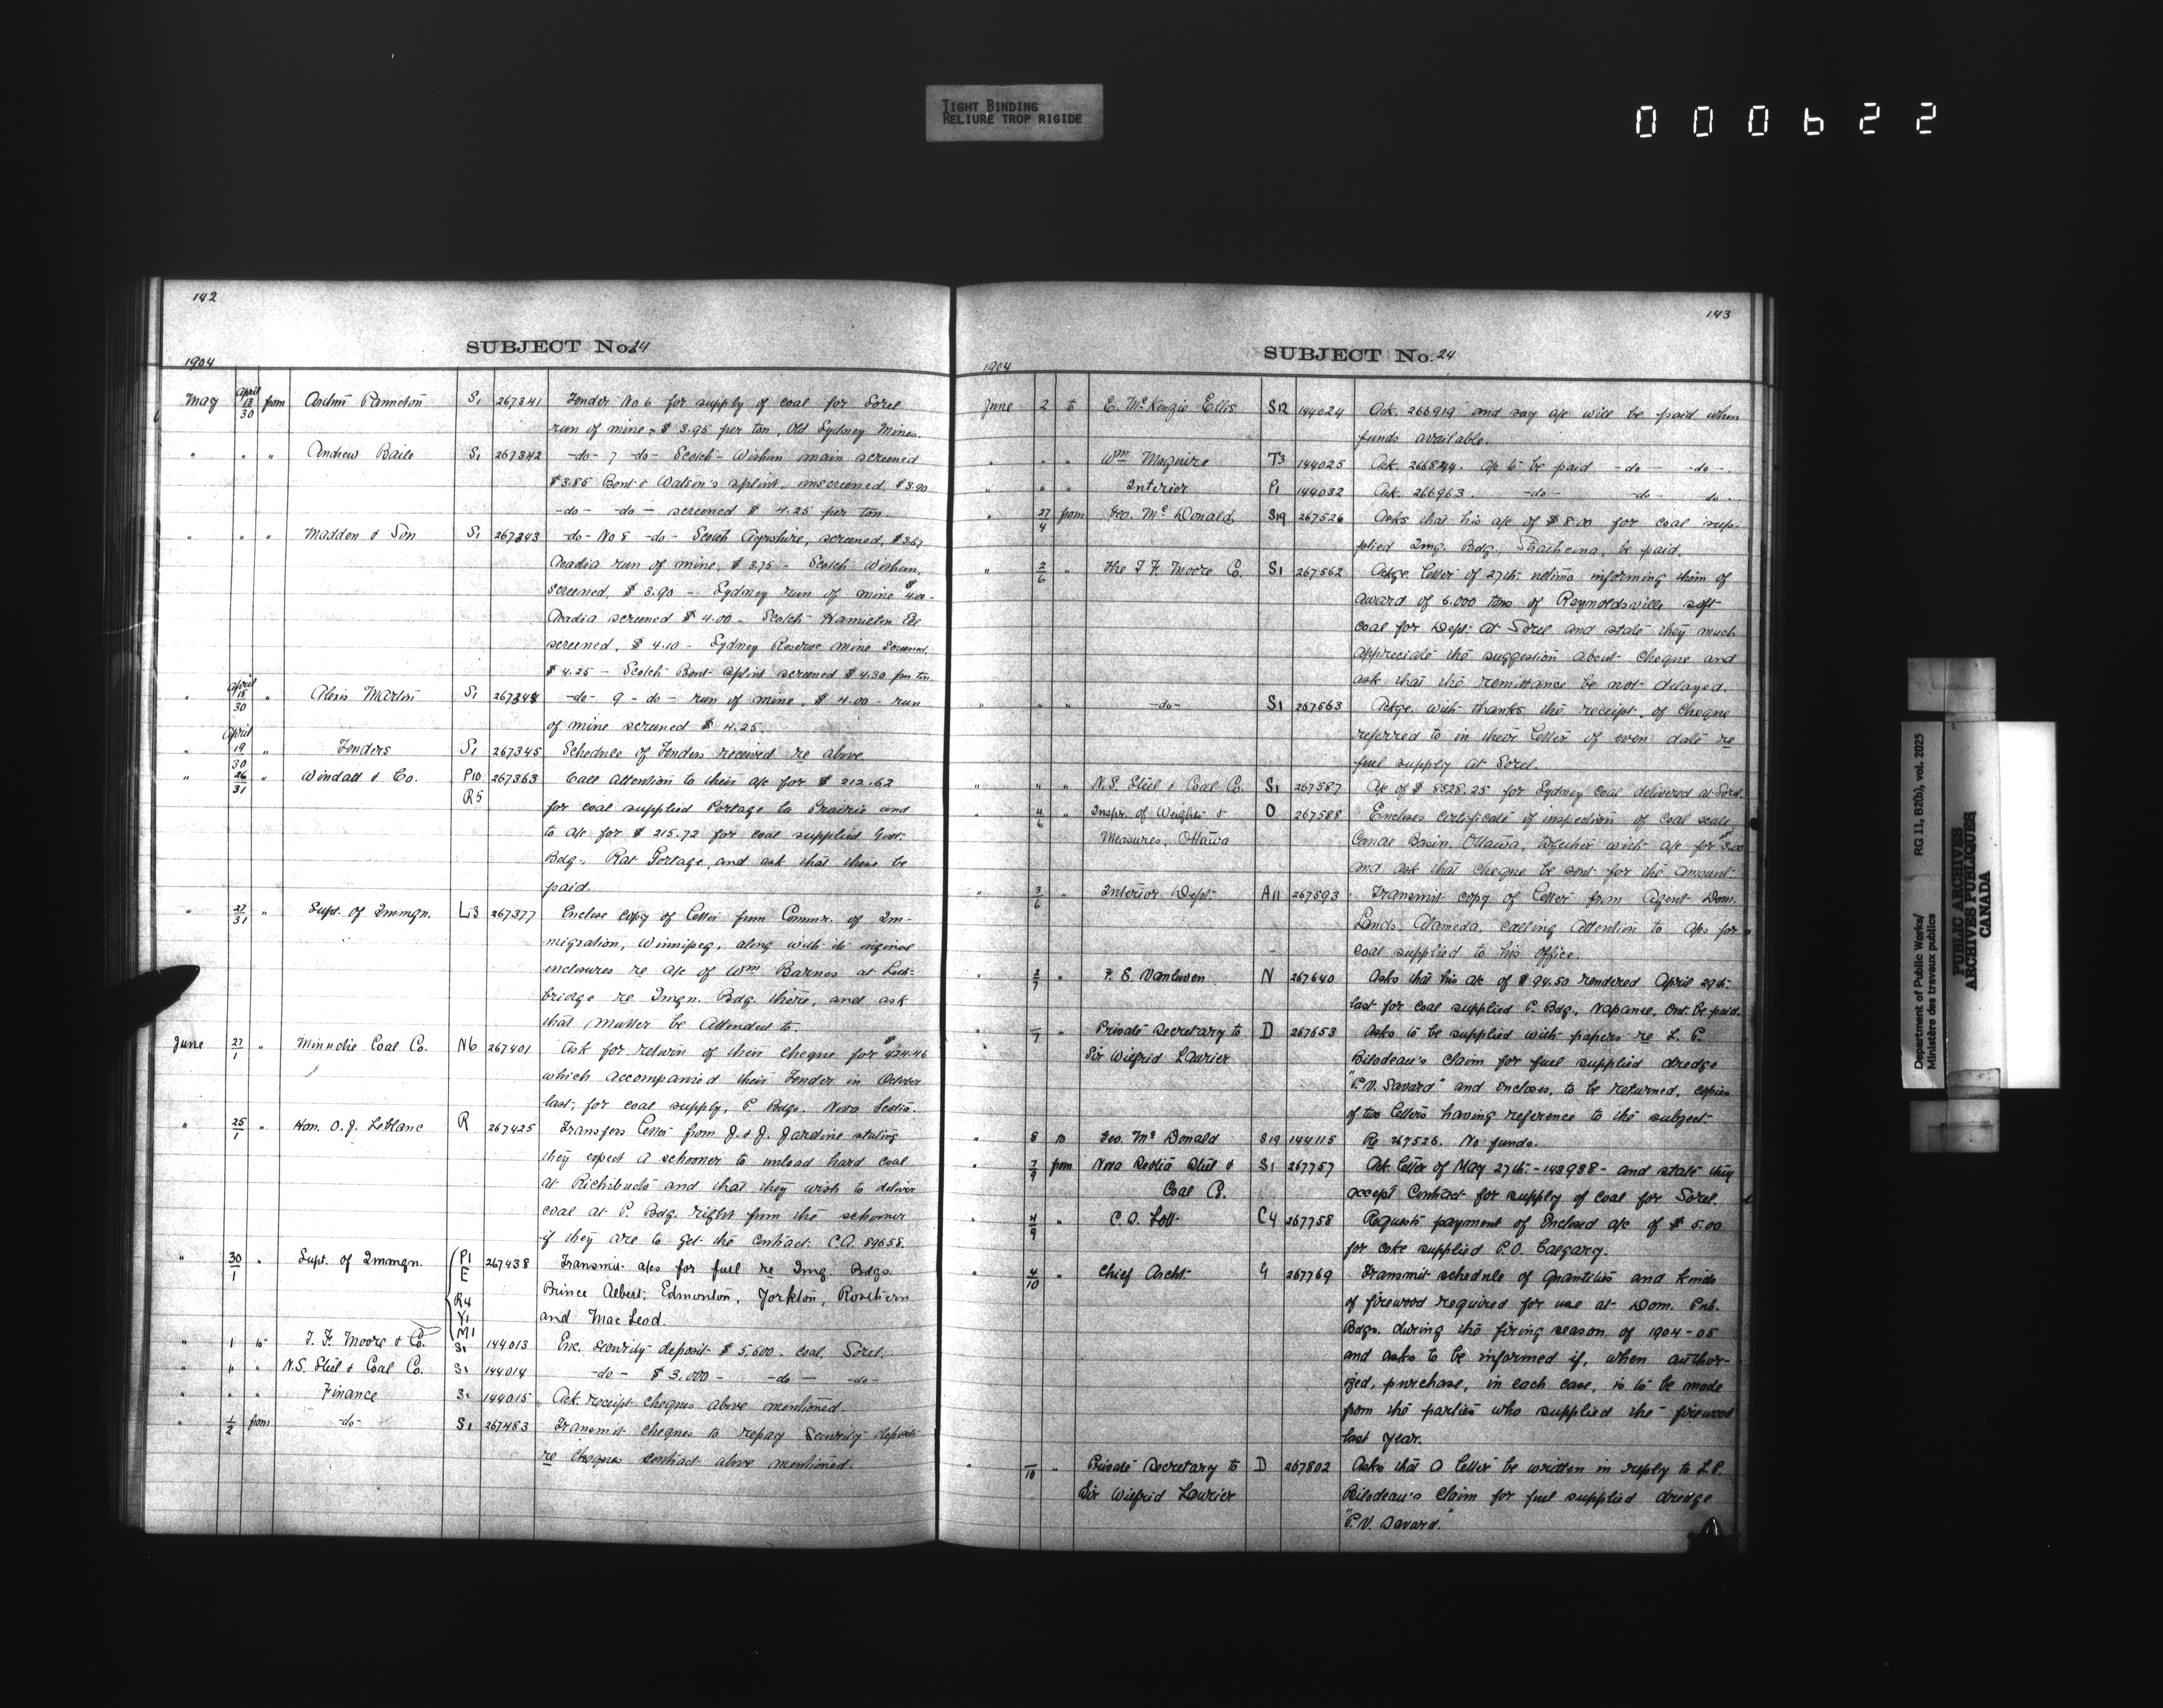 TIGHT BINDING
RELIURE TROP RIGIDE
000622
142
SUBJECT No. 24
1904
May April 13/30 from Panneton S1 267341 Tender No 6 for supply of coal for Sorel
run of mine, $ 3.95 per ton, Old Sydney Mines.
" " " Andrew Baile S1 267342 -do- 7 -do- Scotch - Wishaw main screened
$3.85 Bent & Watson's splint, unscreened, $3.90
-do- -do- screened $ 4.25 per ton.
" " " Madden & Son S1 267343 -do- No 8 -do- Scotch Ayrshire, screened, $3.67
Acadia run of mine, $ 3.75 - Scotch Wishaw,
screened, $ 3.90 - Sydney run of mine $4.00 -
Acadia screened $ 4.00 - Scotch Hamilton Ell
screened, $ 4.10 - Sydney Reserve Mine Screened,
$ 4.25 - Scotch Bent splint screened $ 4.30 per ton.
" April 18/30 " Alexis Martin S1 267344 -do- 9 -do- run of mine, $ 4.00 - run
of mine screened $ 4.25.
" April 19/30 " Tenders S1 267345 Schedule of Tenders received re above.
" 26/31 " Windatt & Co. P10 267363 Call attention to their a/c for $ 212.62
R5 for coal supplied Portage la Prairie and
to a/c for $ 215.72 for coal supplied Govt.
Bdg., Rat Portage, and ask that these be
paid.
" 27/31 " Supt. of Immgn. L3 267377 Enclose copy of letter from Commr. of Im-
migration, Winnipeg, along with its original
enclosures re a/c of Wm Barnes at Leth-
bridge re Immgn. Bdg. there, and ask
that matter be attended to.
June 27/1 " Minudie Coal Co. N6 267401 Ask for return of their cheque for $424.46
which accompanied their Tender in October
last, for coal supply, P. Bdgs. Nova Scotia.
" 25/1 " Hon. O. J. Leblanc R 267425 Transfers letter from J. & J. Jardine stating
they expect a schooner to unload hard coal
at Richibucto and that they wish to deliver
coal at P. Bdg. right from the schooner
if they are to get the contract. C.A. 89658.
" 30/1 " Supt. of Immgn. P1 267438 Transmit a/cs for fuel re Img. Bdgs.
E
R4 Prince Albert, Edmonton, Yorkton, Rosthern
Y1 and MacLeod.
M1
" 1 to T. F. Moore & Co. S1 144013 Enc. security deposit $ 5,600. coal, Sorel.
" " " N.S. Steel & Coal Co. S1 144014 -do- $ 3,000 - -do- -do-
" " " Finance S1 144015 Ack. receipt cheques above mentioned.
" 1/2 from -do- S1 267483 Transmit cheques to repay security deposit
re contract above mentioned.
143
SUBJECT No. 24
1904
June 2 to E. McKenzie Ellis S12 144024 Ack. 266919 and say a/c will be paid when
funds available.
" " " Wm Maguire T3 144025 Ack. 266824. a/c to be paid -do- -do-.
" " " Interior P1 144032 Ack. 266963. -do- -do- do.
" 27/4 from Geo. McDonald S19 267526 Asks that his a/c of $ 8.00 for coal sup-
plied Img. Bdg., Strathcona, be paid.
" 2/6 " The T. F. Moore Co. S1 267562 Ackge. letter of 27th ultimo informing them of
award of 6.000 tons of Reynoldsville soft
coal for Dept. at Sorel and state they much
appreciate the suggestion about cheque and
ask that the remittance be not delayed.
" " " -do- S1 267563 Ackge. with thanks the receipt of cheque
referred to in their letter of even date re
fuel supply at Sorel.
" " " N.S. Steel & Coal Co. S1 267587 A/c of $ 8528.25 for Sydney coal delivered at Sorel.
" 4/6 " Inspr. of Weights & O 267588 Encloses certificate of inspection of coal scale,
Measures, Ottawa Canal Basin, Ottawa, together with a/c for $3.00
and ask that cheque be sent for the amount.
" 3/6 " Interior Dept. A11 267593 Transmit copy of letter from Agent Dom.
Lands, Alameda, calling attention to a/cs for
coal supplied to his office.
" 2/7 " F. E. Vanluven N 267640 Asks that his a/c of $ 94.50 rendered April 29th
last for coal supplied P. Bdg., Napanee, Ont. be paid.
" –/7 " Private Secretary to D 267653 Asks to be supplied with papers re L. P.
Sir Wilfrid Laurier Bilodeau's claim for fuel supplied dredge
"P.V. Savard" and encloses, to be returned, copies
of two letters having reference to the subject.
" 8 to Geo. McDonald S19 144115 Re 267526. No funds.
" 7/9 from Nova Scotia Steel & S1 267757 Ack. letter of May 27th - 143938 - and state they
Coal Co. accept contract for supply of coal for Sorel.
" 4/9 " C. O. Lott C4 267758 Requests payment of enclosed a/c of $ 5.00
for coke supplied P.O. Calgary.
" 4/10 " Chief Archt. G 267769 Transmit schedule of quantities and kinds
of firewood required for use at Dom. Pub.
Bdgs. during the firing season of 1904-05
and asks to be informed if, when author-
ized, purchase, in each case, is to be made
from the parties who supplied the firewood
last year.
" –/10 " Private Secretary to D 267802 Asks that a letter be written in reply to L.P.
Sir Wilfrid Laurier Bilodeau's claim for fuel supplied dredge
"P.V. Savard."
Department of Public Works/
Ministère des travaux publics
RG 11, B2(b), vol. 2025
PUBLIC ARCHIVES
ARCHIVES PUBLIQUES
CANADA